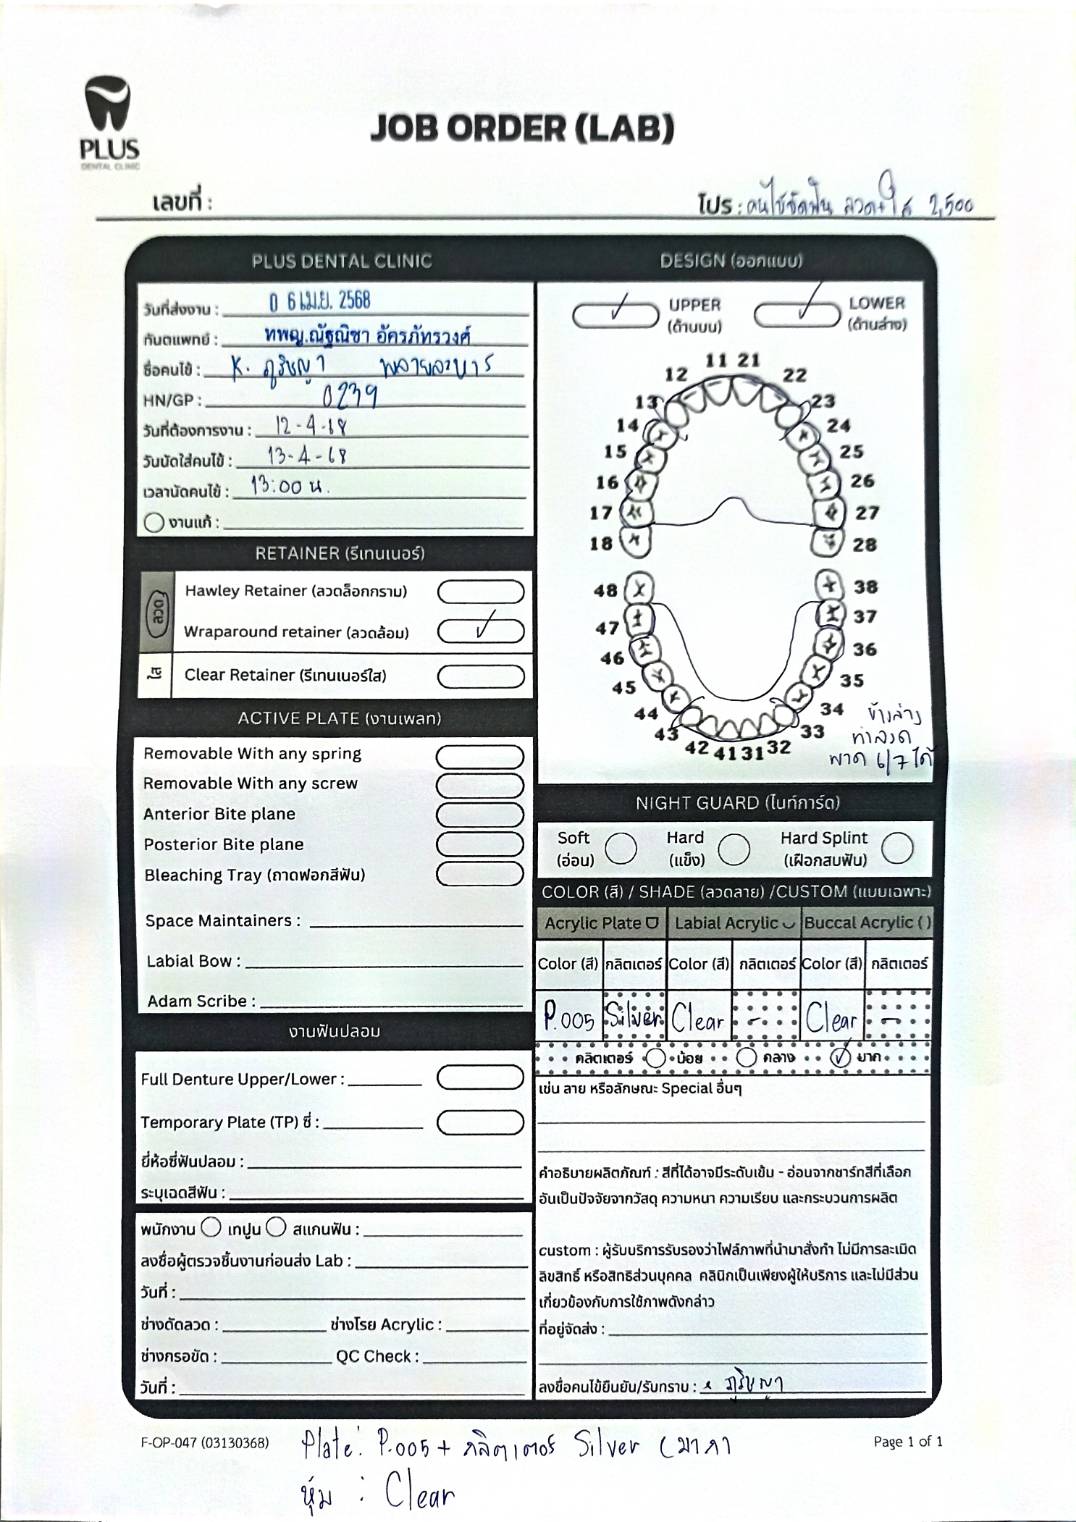 PLUS
DENTAL CLINIC
JOB ORDER (LAB)
เลขที่ :
โปร : คนไข้จัดฟัน ลวด+ใส 2,500
PLUS DENTAL CLINIC
วันที่ส่งงาน : 0 6 เม.ย. 2568
ทันตแพทย์ : ทพญ.ณัฐณิชา อัครภัทรวงศ์
ชื่อคนไข้ : K. ภูริชญา
HN/GP : 0239
วันที่ต้องการงาน : 12-4-68
วันนัดใส่คนไข้ : 13-4-68
เวลานัดคนไข้ : 13:00 น.
งานแก้ :
RETAINER (รีเทนเนอร์)
ลวด
Hawley Retainer (ลวดล็อกกราม)
Wraparound retainer (ลวดล้อม)
ใส
Clear Retainer (รีเทนเนอร์ใส)
ACTIVE PLATE (งานเพลท)
Removable With any spring
Removable With any screw
Anterior Bite plane
Posterior Bite plane
Bleaching Tray (ถาดฟอกสีฟัน)
Space Maintainers :
Labial Bow :
Adam Scribe :
งานฟันปลอม
Full Denture Upper/Lower :
Temporary Plate (TP) ซี่ :
ยี่ห้อซี่ฟันปลอม :
ระบุเฉดสีฟัน :
พนักงาน เทปูน สแกนฟัน :
ลงชื่อผู้ตรวจชิ้นงานก่อนส่ง Lab :
วันที่ :
ช่างดัดลวด : ช่างโรย Acrylic :
ช่างกรอขัด : QC Check :
วันที่ :
DESIGN (ออกแบบ)
UPPER
(ด้านบน)
LOWER
(ด้านล่าง)
11 21
12 22
13 23
14 24
15 25
16 26
17 27
18 28
48 38
47 37
46 36
45 35
44 34
43 33
42 41 31 32
ข้างล่าง
ทำลวด
พาด 6/7 ได้
NIGHT GUARD (ไนท์การ์ด)
Soft
(อ่อน)
Hard
(แข็ง)
Hard Splint
(เฝือกสบฟัน)
COLOR (สี) / SHADE (ลวดลาย) /CUSTOM (แบบเฉพาะ)
Acrylic Plate Labial Acrylic Buccal Acrylic ( )
Color (สี) กลิตเตอร์ Color (สี) กลิตเตอร์ Color (สี) กลิตเตอร์
P.005 Silver Clear - Clear -
กลิตเตอร์ น้อย กลาง มาก
เช่น ลาย หรือลักษณะ Special อื่นๆ
คำอธิบายผลิตภัณฑ์ : สีที่ได้อาจมีระดับเข้ม - อ่อนจากชาร์ทสีที่เลือก
อันเป็นปัจจัยจากวัสดุ ความหนา ความเรียบ และกระบวนการผลิต
custom : ผู้รับบริการรับรองว่าไฟล์ภาพที่นำมาสั่งทำ ไม่มีการละเมิด
ลิขสิทธิ์ หรือสิทธิส่วนบุคคล คลินิกเป็นเพียงผู้ให้บริการ และไม่มีส่วน
เกี่ยวข้องกับการใช้ภาพดังกล่าว
ที่อยู่จัดส่ง :
ลงชื่อคนไข้ยืนยัน/รับทราบ : x ภูริชญา
F-OP-047 (03130368)
Page 1 of 1
Plate : P.005 + กลิตเตอร์ Silver (มาก)
หุ้ม : Clear